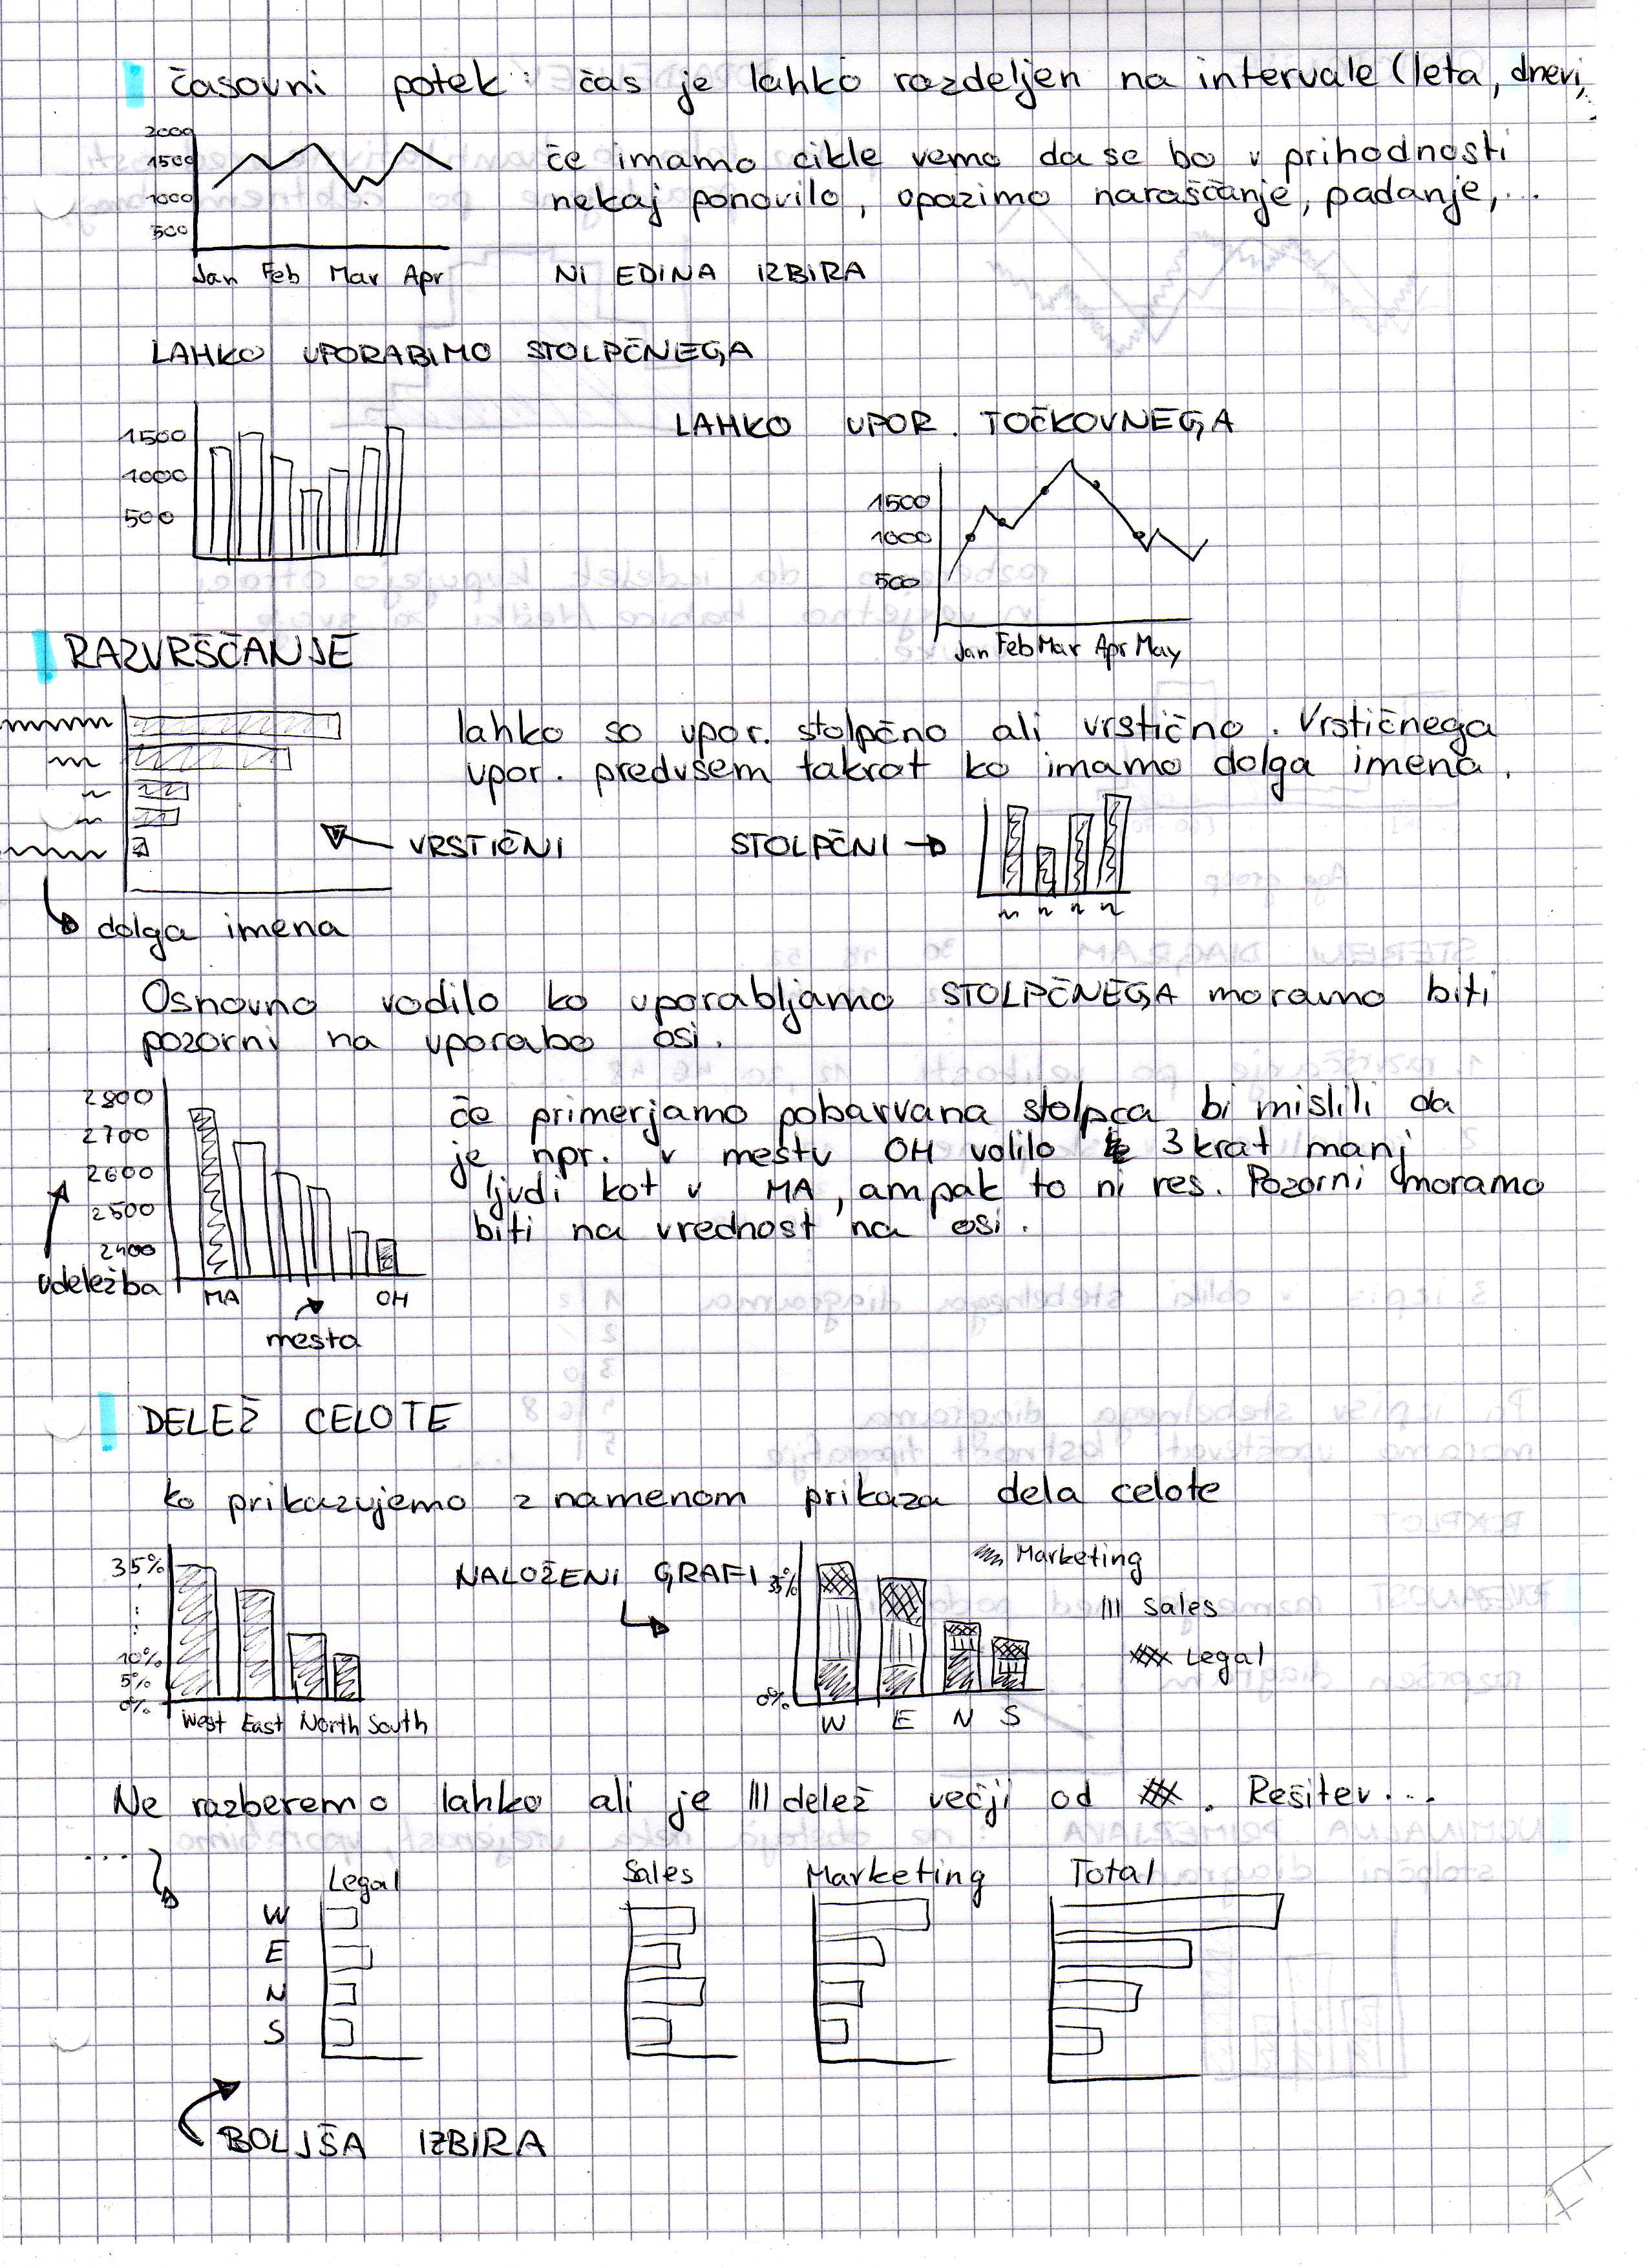 časovni potek: čas je lahko razdeljen na intervale (leta, dnevi,
2000
1500
1000
500
Jan Feb Mar Apr
če imamo cikle vemo da se bo v prihodnosti
nekaj ponovilo, opazimo naraščanje, padanje,...
NI EDINA IZBIRA
LAHKO UPORABIMO STOLPČNEGA
1500
1000
500
LAHKO UPOR. TOČKOVNEGA
1500
1000
500
Jan Feb Mar Apr May
RAZVRŠČANJE
lahko so upor. stolpčno ali vrstično. Vrstičnega
upor. predvsem takrat ko imamo dolga imena.
VRSTIČNI
STOLPČNI
dolga imena
Osnovno vodilo ko uporabljamo STOLPČNEGA moramo biti
pozorni na uporabo osi.
2800
2700
2600
2500
2400
udeležba
MA OH
mesta
če primerjamo pobarvana stolpca bi mislili da
je npr. v mestu OH volilo 3 krat manj
ljudi kot v MA, ampak to ni res. Pozorni moramo
biti na vrednost na osi.
DELEŽ CELOTE
ko prikazujemo z namenom prikaza dela celote
35%
10%
5%
0%
West East North South
NALOŽENI GRAFI
35%
0%
W E N S
Marketing
||| Sales
Legal
Ne razberemo lahko ali je ||| delež večji od . Rešitev...
....
Legal Sales Marketing Total
W
E
N
S
BOLJŠA IZBIRA